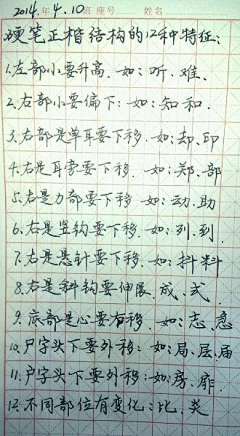 2014.年4.10 班 座号 姓名
硬笔正楷结构的12种特征:
1.左部小要升高.如:听.难.
2.右部小要偏下:如:知和.
3.右部是单耳要下移.如:却.印
4.右是耳旁要下移.如:郑.部
5.右是力部要下移.如:动.助
6.右是竖钩要下移.如:列.到.
7.右是悬针要下移.如:抖料
8.右是斜钩要伸展 成.式.
9.底部是心要右移.如:志.意
10.尸字头下要外移:如:局.层届
11.户字头下要外移:如:房.扉.
12.不同部位有变化:比.炎